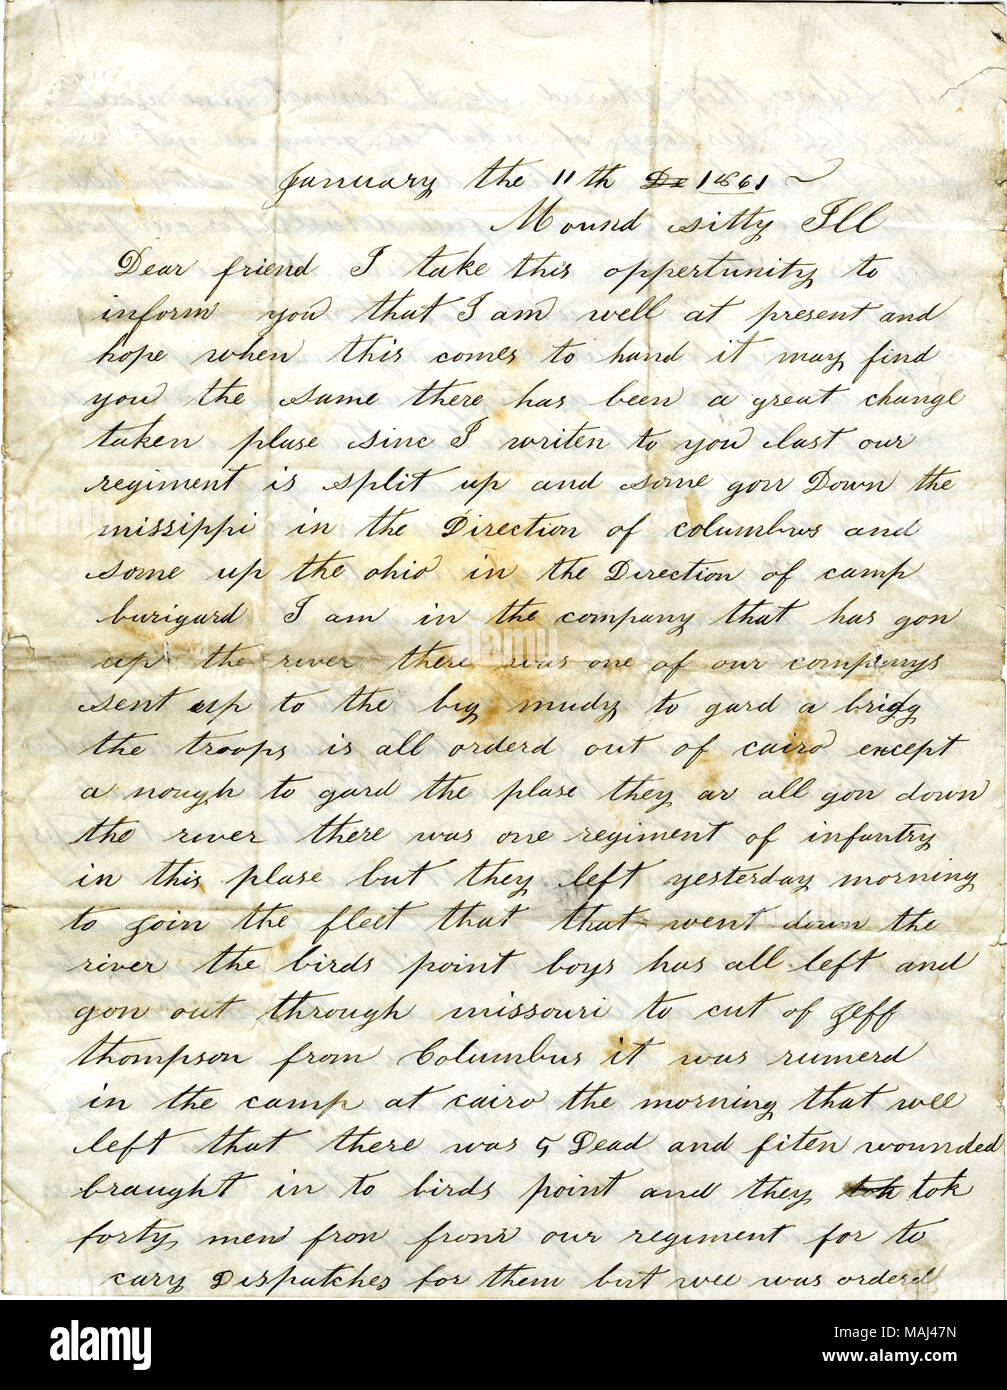 January the 11th De 1861
Mound sitty Ill
Dear friend I take this oppertunity to
inform you that I am well at present and
hope when this comes to hand it may find
you the same there has been a great change
taken plase sinc I writen to you last our
regiment is split up and some gon Down the
missippi in the Direction of columbus and
some up the ohio in the Direction of camp
burigard I am in the company that has gon
up the river there was one of our companys
sent up to the big mudy to gard a bridg
the troops is all orderd out of cairo except
a nough to gard the plase they ar all gon down
the river there was one regiment of infantry
in this plase but they left yesterday morning
to join the fleet that that went down the
river the birds point boys has all left and
gon out through missouri to cut of jeff
thompson from Columbus it was rumerd
in the camp at cairo the morning that wee
left that there was 5 Dead and fiten wounded
braught in to birds point and they tok tok
forty men fron from our regiment for to
cary Dispatches for them but wee was orderd
alamy
alamy stock photo
MAJ47N
www.alamy.com